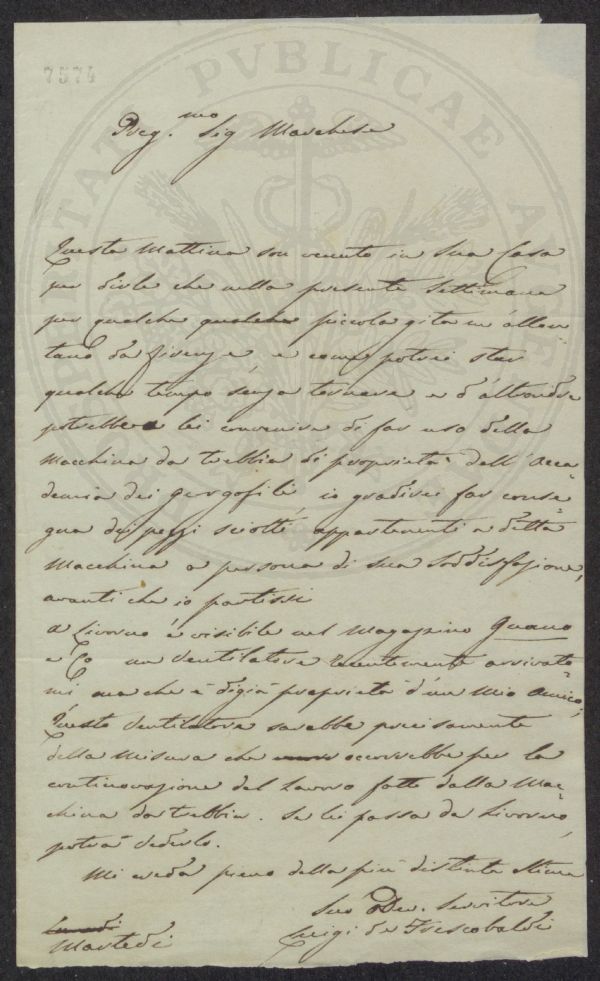 7574
PVBLICAE
Preg.mo Sig Marchese
Questa Mattina son venuto in Sua Casa
per dirle che nella presente Settimana
per qualche qualche piccola gita m'allon
tano da firenze, e come potrei star
qualche tempo senza tornare e d'altronde
potrebbe a lei convenire di far uso della
Macchina da trebbia di proprietà dell'Acca=
demia dei gergofili io gradirei far conse=
gna dei pezzi sciolti appartenenti a detta
Macchina a persona di sua soddisfazione,
avanti che io partissi
A Livorno è visibile nel Magazzino
e Co un Ventilatore recentemente arrivato=
mi ma che è digià proprietà d'un Mio Amico,
Questo Ventilatore sarebbe precisamente
della Misura che occorrebbe per la
continovazione del lavoro fatto dalla Mac=
china da trebbia. Se lei passa da Livorno,
potrà vederlo.
Mi creda pieno della più distinta stima
Suo Dev. Servitore
Luigi de Frescobaldi
Lunedi
Martedi